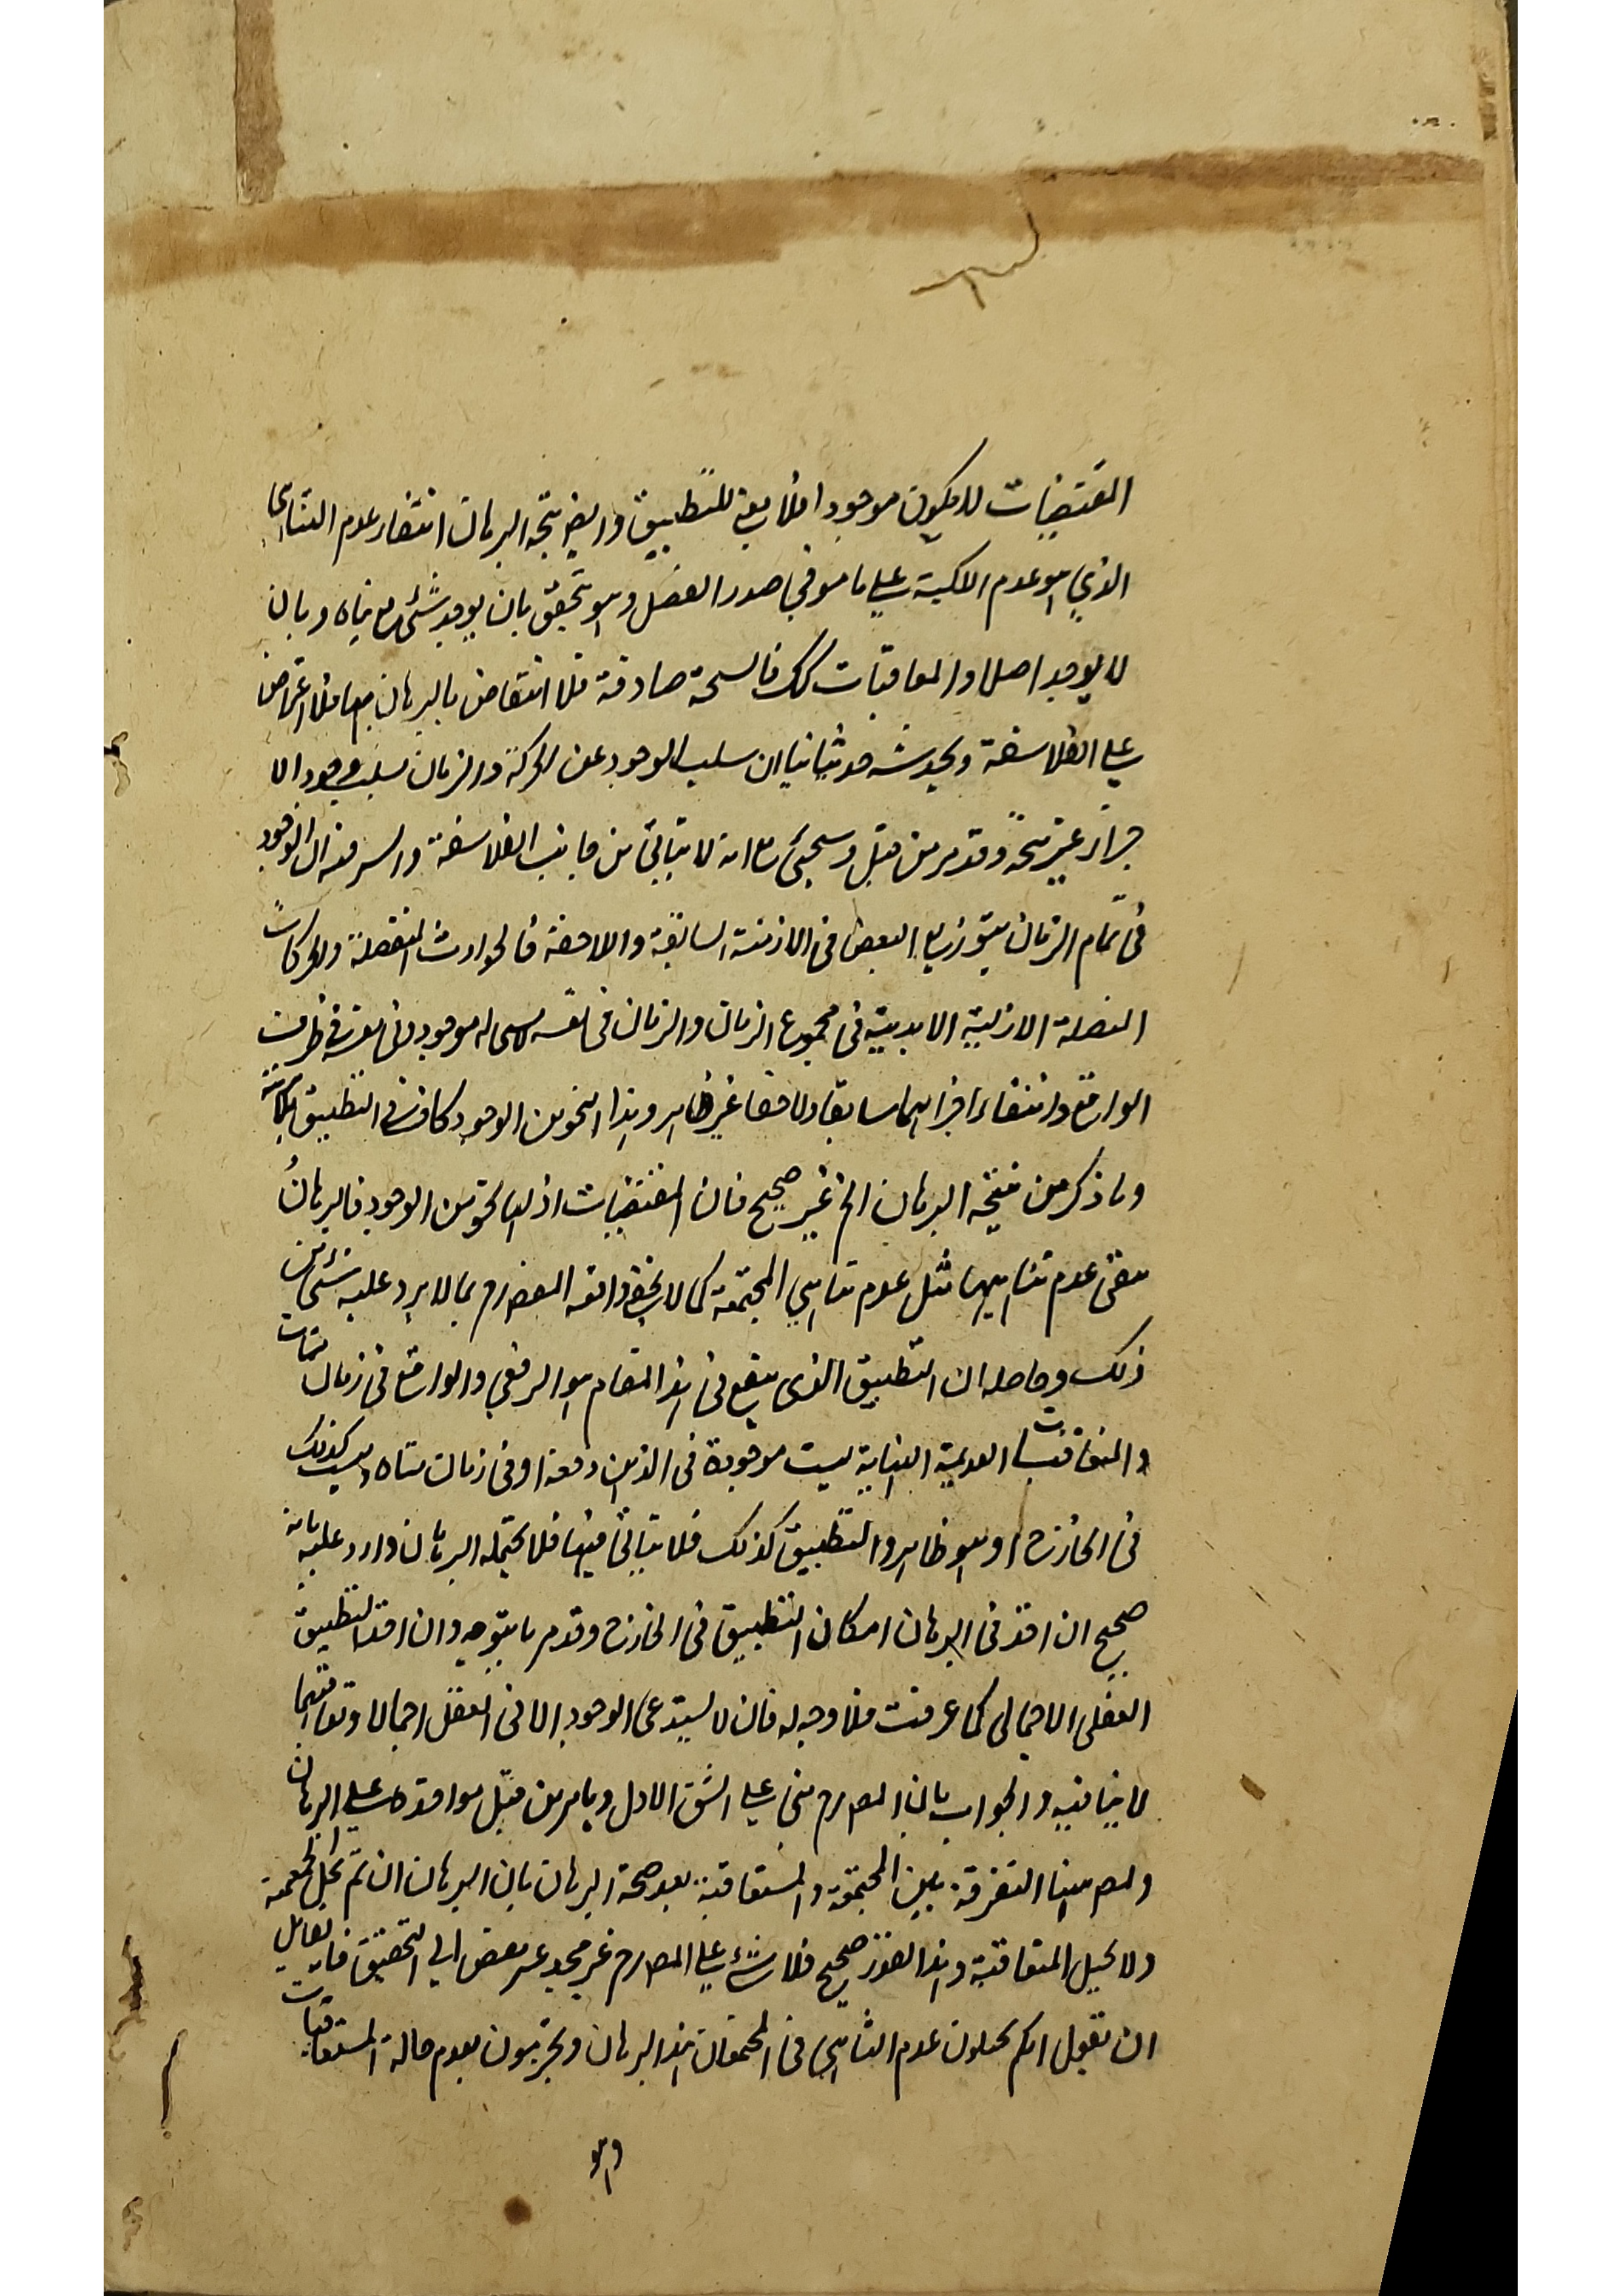 المقتضيات لا يكون موجودا فلا يعني للتطبيق وايضا نتيجة البرهان انتفاء عدم التناهي
الذي هو عدم الملكية على ما هو في صدر الفصل وهو يتحقق بان يوجد شئ متناه وبان
لا يوجد اصلا والمعاقبات كك فالنتيجة صادقة فلا انتقاض بالبرهان بها فلا اعتراض
على الفلاسفة ويخدشه خدشا ثانيا ان سلب الوجود عن الحركة والزمان بسلب وجود الا
جزاء غير متجه وقد مر من قبل وسيجئ مع انه لا يتأتى من جانب الفلاسفة والسر فيه ان الوجود
في تمام الزمان يتوزع البعض في الازمنة السابقة واللاحقة فالحوادث المنفصلة والحركات
المتصلة الازلية الابدية في مجموع الزمان والزمان في نفسه موجود في ظرف
الواقع وانتفاء اجزائهما سابقا ولاحقا غير ظاهر وهذا النحو من الوجود كاف في التطبيق
وما ذكر من نتيجة البرهان الخ غير صحيح فان المقتضيات اذ لها نحو من الوجود فالبرهان
ينفى عدم تناهيها مثل عدم تناهي المجتمعة كما لا يخفى وافقه بما لا يرد عليه شئ من
ذلك وحاصله ان التطبيق الذي ينفع في هذا المقام هو الرفعي والواقع في زمان متناه
والمتعاقبات العديمة النهاية ليست موجودة في الذهن دفعة او في زمان متناه وليست كذلك
في الخارج وهو ظاهر والتطبيق كذلك فلا يتأتى فيها فلا يحتمله البرهان وارد عليه بانه
صحيح ان اخذ في البرهان امكان التطبيق في الخارج وقد مر ما يتوجه وان اخذ التطبيق
العقلي الاجمالي كما عرفت فلا وجه له فان لا يستدعى الوجود الا في العقل اجمالا وتعاقبها
لا ينافيه والجواب بان المصارم مبني على الشق الاول وما مر من قبل مواخذة على البرهان
والمص هنا التفرقة بين المجتمعة والمتعاقبة بعد صحة البرهان بان البرهان ان تم يحيل المجتمعة
ولا يحيل المتعاقبة وهذا القدر صحيح فلا شئ على المصارم غير مجد عند بعض اهل التحقيق فان لقائل
ان يقول انكم تحيلون عدم التناهي في المجتمعات بهذا البرهان وتجزمون بعدم احالة المتعاقبات
وهو